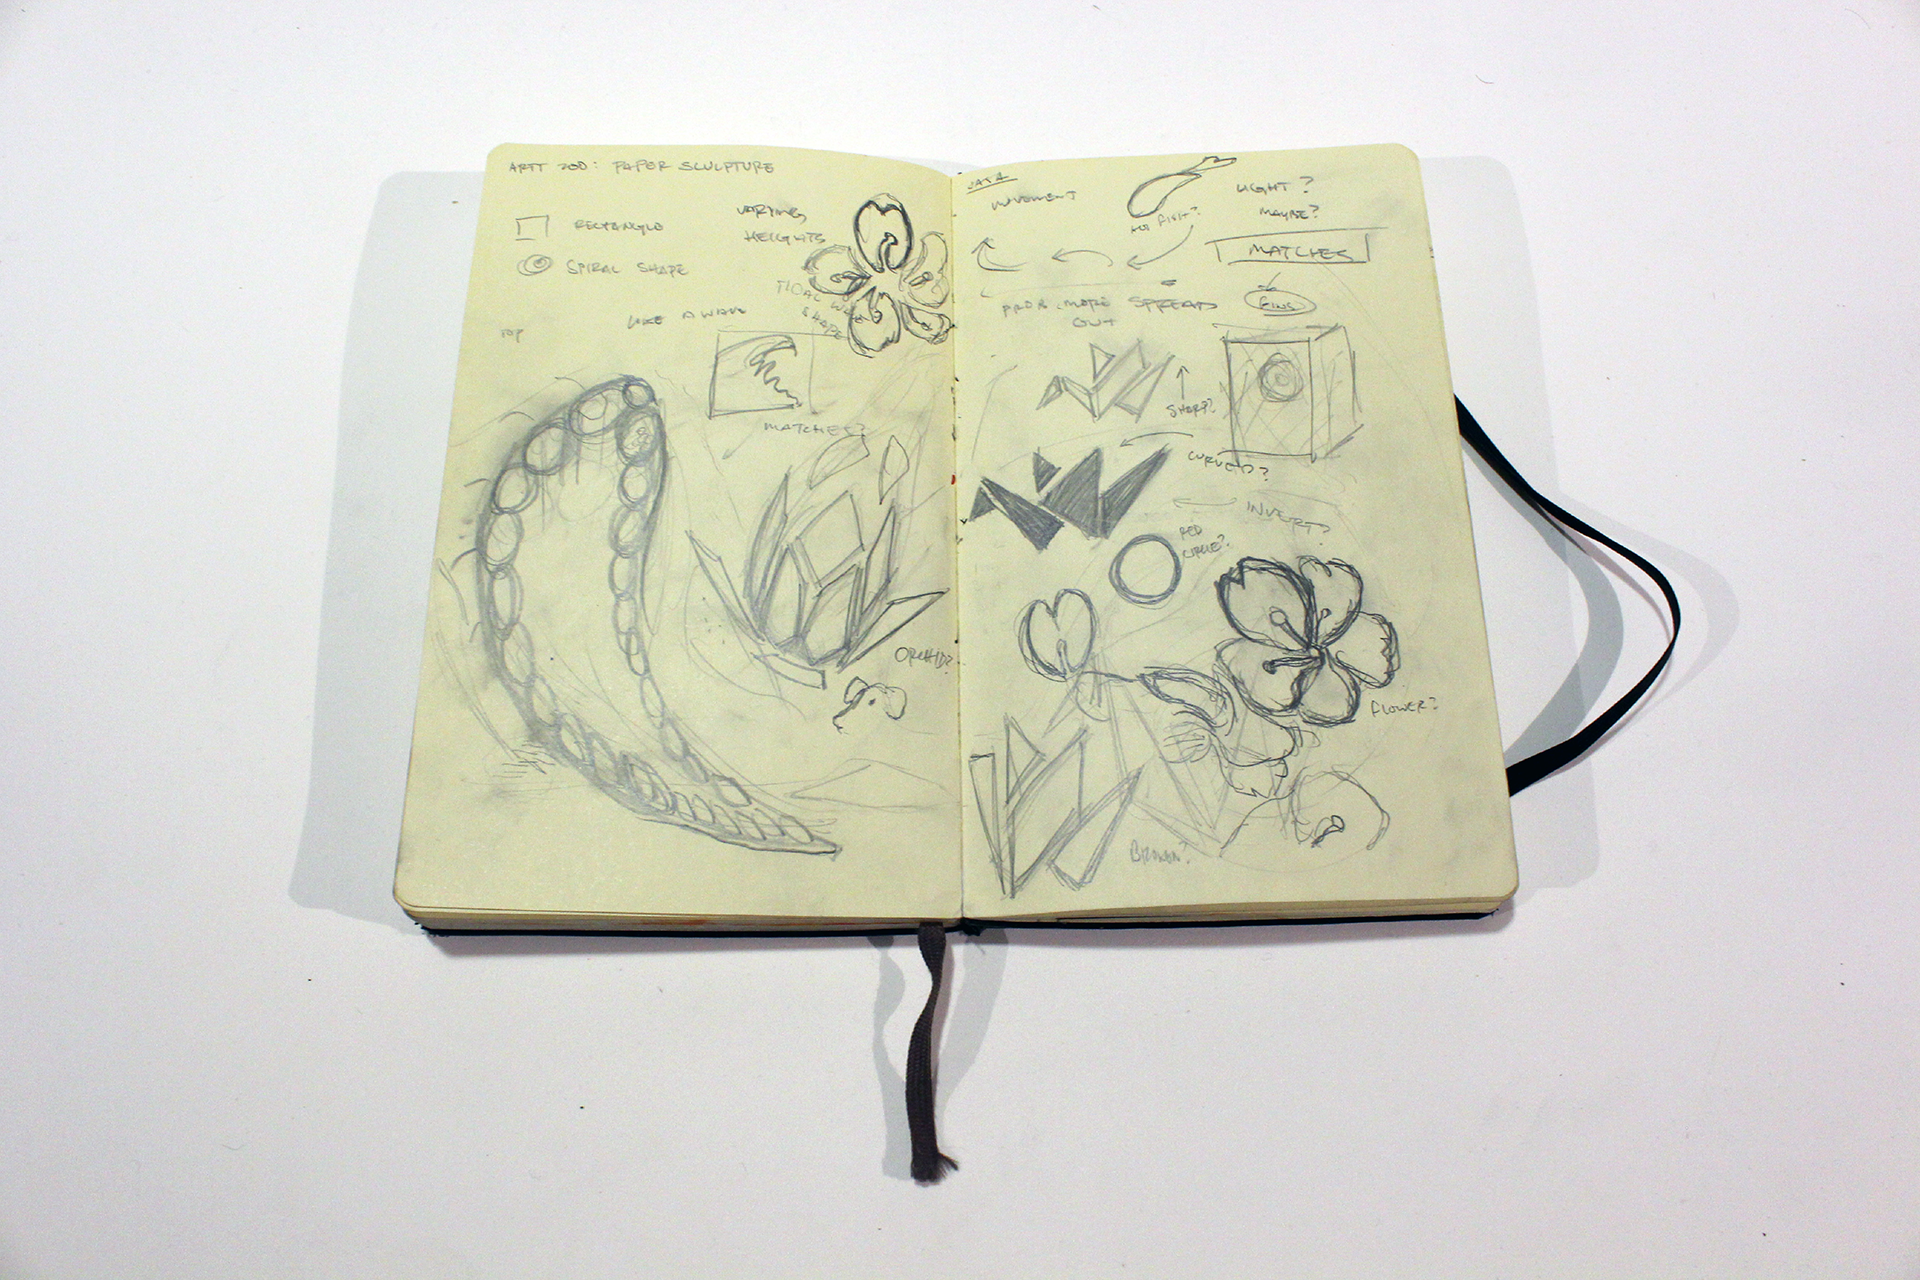 ARTT 200: PAPER SCULPTURE
RECTANGLE
SPIRAL SHAPE
VARYING
HEIGHTS
TIDAL WAVE
SHAPE
LIKE A WAVE
TOP
MATCHES?
ORCHID?
MOVEMENT
LIGHT?
MAYBE?
MATCHES
PROB. MORE SPREAD
OUT
SHARP?
CURVED?
INVERT?
RED
CIRCLE?
FLOWER?
BROKEN?